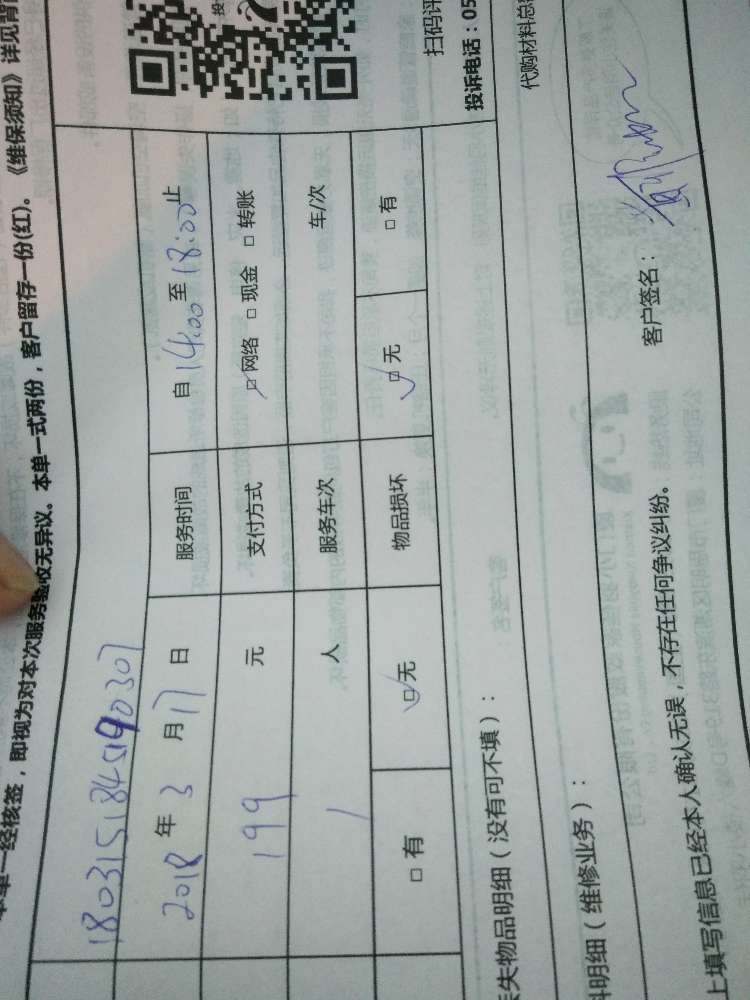 本单一经核签，即视为对本次服务验收无异议。本单一式两份，客户留存一份(红)。《维保须知》详见背
投
扫码评
投诉电话：05
180315184519030
2018 年 3 月 17 日 服务时间 自 14:00 至 18:00 止
199 元 支付方式 □网络 □ 现金 □ 转账
1 人 服务车次 车/次
□ 有 □ 无 物品损坏 □ 无 □ 有
失物品明细（没有可不填）：
代购材料总
料明细（维修业务）：
客户签名：
上填写信息已经本人确认无误，不存在任何争议纠纷。